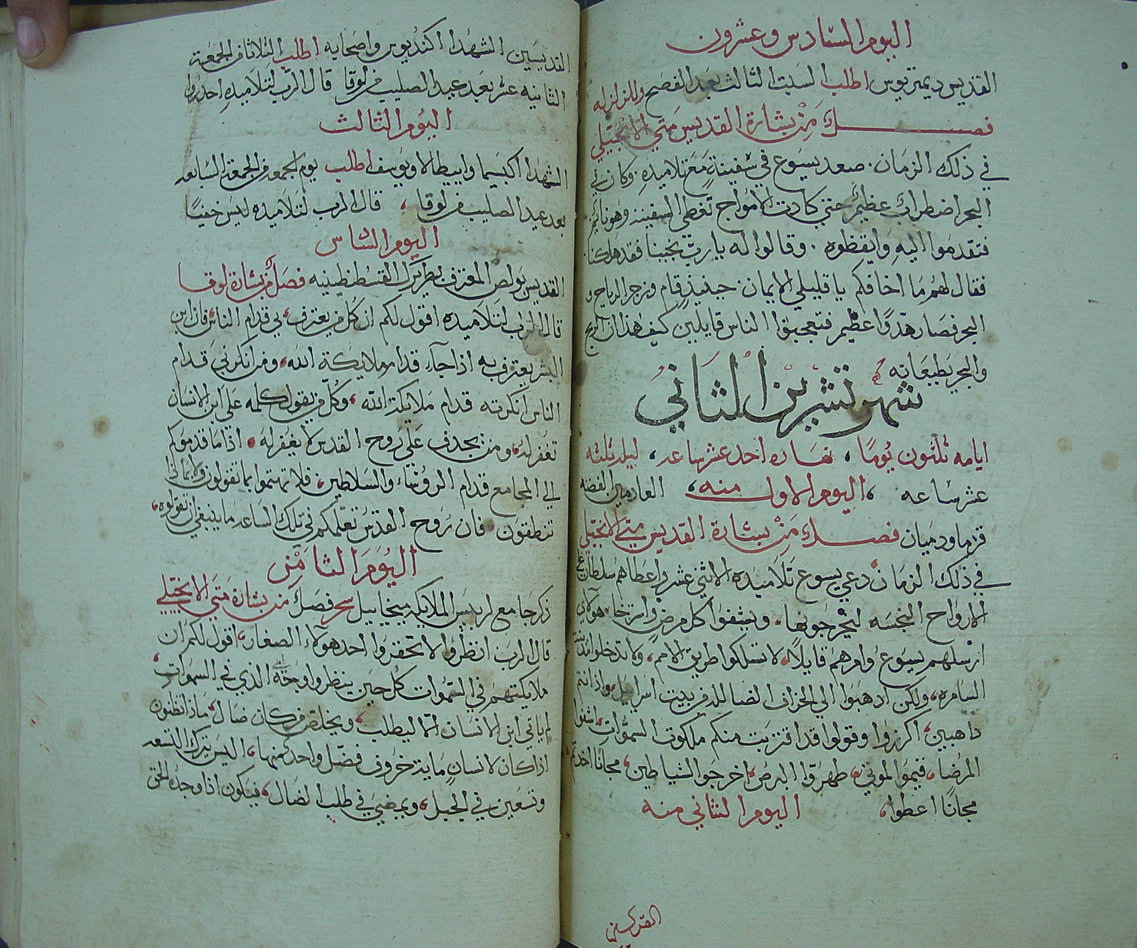 اليوم السادس وعشرون
القديس ديمتريوس اطلب السبت الثالث بعد الفصح وللزلزله
فصل من بشارة القديس متى الانجيلي
في ذلك الزمان. صعد يسوع في سفينة مع تلاميذه. وكان في
البحر اضطراب عظيم حتى كادت الامواج تغطى السفينه وهو نايم
فتقدموا اليه وايقظوه. وقالوا له يا رب نجينا فقد هلكنا
فقال لهم ما اخافكم يا قليلي الايمان. حينيذ قام وزجر الرياح و
البحر فصار هدوًا عظيم فتعجبوا الناس قايلين كيف هذا ان الريح
والبحر يطيعانه
شهر تشرين الثاني
ايامه ثلثون يومًا، نهاره احد عشر ساعه، ليله ثلثة
عشر ساعه، اليوم الاول منه، العادمين الفضه
قزما ودميان فصل من بشارة القديس متى الانجيلي
في ذلك الزمان دعي يسوع تلاميذه الاثني عشر واعطاهم سلطان على
الارواح النجسه ليخرجوها. ويشفوا كل مرض واسترخا، هولاي
ارسلهم يسوع وامرهم قايلًا، لا تسلكوا طريق الامم، ولا تدخلوا مدينة
السامره، ولكن اذهبوا الي الخراف الضاله من بيت اسراييل، واذا انتم
ذاهبين، اكرزوا وقولوا قد اقتربت منكم ملكوت السموات، اشفوا
المرضا، قيموا الموتى، طهروا البرص، اخرجوا الشياطين، مجانًا اخذتم
مجانًا اعطوا، اليوم الثاني منه
القديسين
القديسين الشهدا اكنديوس واصحابه اطلب الثلاثا في الجمعة
الثانيه عشر بعد عيد الصليب من لوقا قال الرب لتلاميذه احذروا
اليوم الثالث
الشهدا اكبسيما وايبيطالا ويوسف اطلب يوم الجمعه من الجمعة السابعه
بعد عيد الصليب من لوقا، قال الرب لتلاميذه ليس خفيًا
اليوم السادس
القديس بولص المعترف بطريرك القسطنطينيه فصل من بشارة لوقا
قال الرب لتلاميذه اقول لكم ان كل من يعترف بي قدام الناس فان ابن
البشر يعترف به اذا جاء قدام ملايكة الله، ومن انكرني قدام
الناس انكرته قدام ملايكة الله، وكل من يقول كلمه على ابن الانسان
تغفر له، ومن يجدف على روح القدس لا يغفر له، اذا ما قدموكم
الي المجامع قدام الروساء والسلاطين، فلا تهتموا بما تقولون ولا بماذا
تنطقون، فان روح القدس تعلمكم في تلك الساعه ما ينبغي ان تقولوه،
اليوم الثامن
ذكر جامع لرييس الملايكه ميخاييل سحر فصل من بشارة متى الانجيلي
قال الرب انظروا لا تحقروا احد هولاء الصغار، اقول لكم ان
ملايكتهم في السموات كل حين ينظروا وجه الذي في السموات
لم ياتي ابن الانسان الا ليطلب، ويخلص من كان ضال، ماذا تظنون
اذا كان لانسان ماية خروف فضل واحد منها، اليس يترك التسعه
وتسعين في الجبل، ويمضي في طلب الضال، فيكون اذا وجده الحق